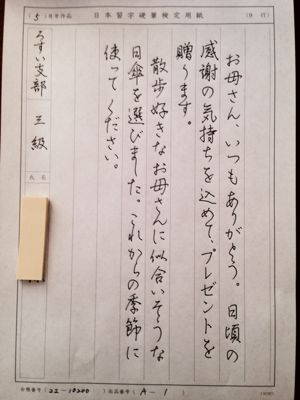 (5)月号作品 日本習字硬筆検定用紙 (9行)
お母さん、いつもありがとう。日頃の
感謝の気持ちを込めて、プレゼントを
贈ります。
散歩好きなお母さんに似合いそうな
日傘を選びました。これからの季節に
使ってください。
うすい支部 三級
氏名
会員番号(22-10200) 出品番号(A-1)